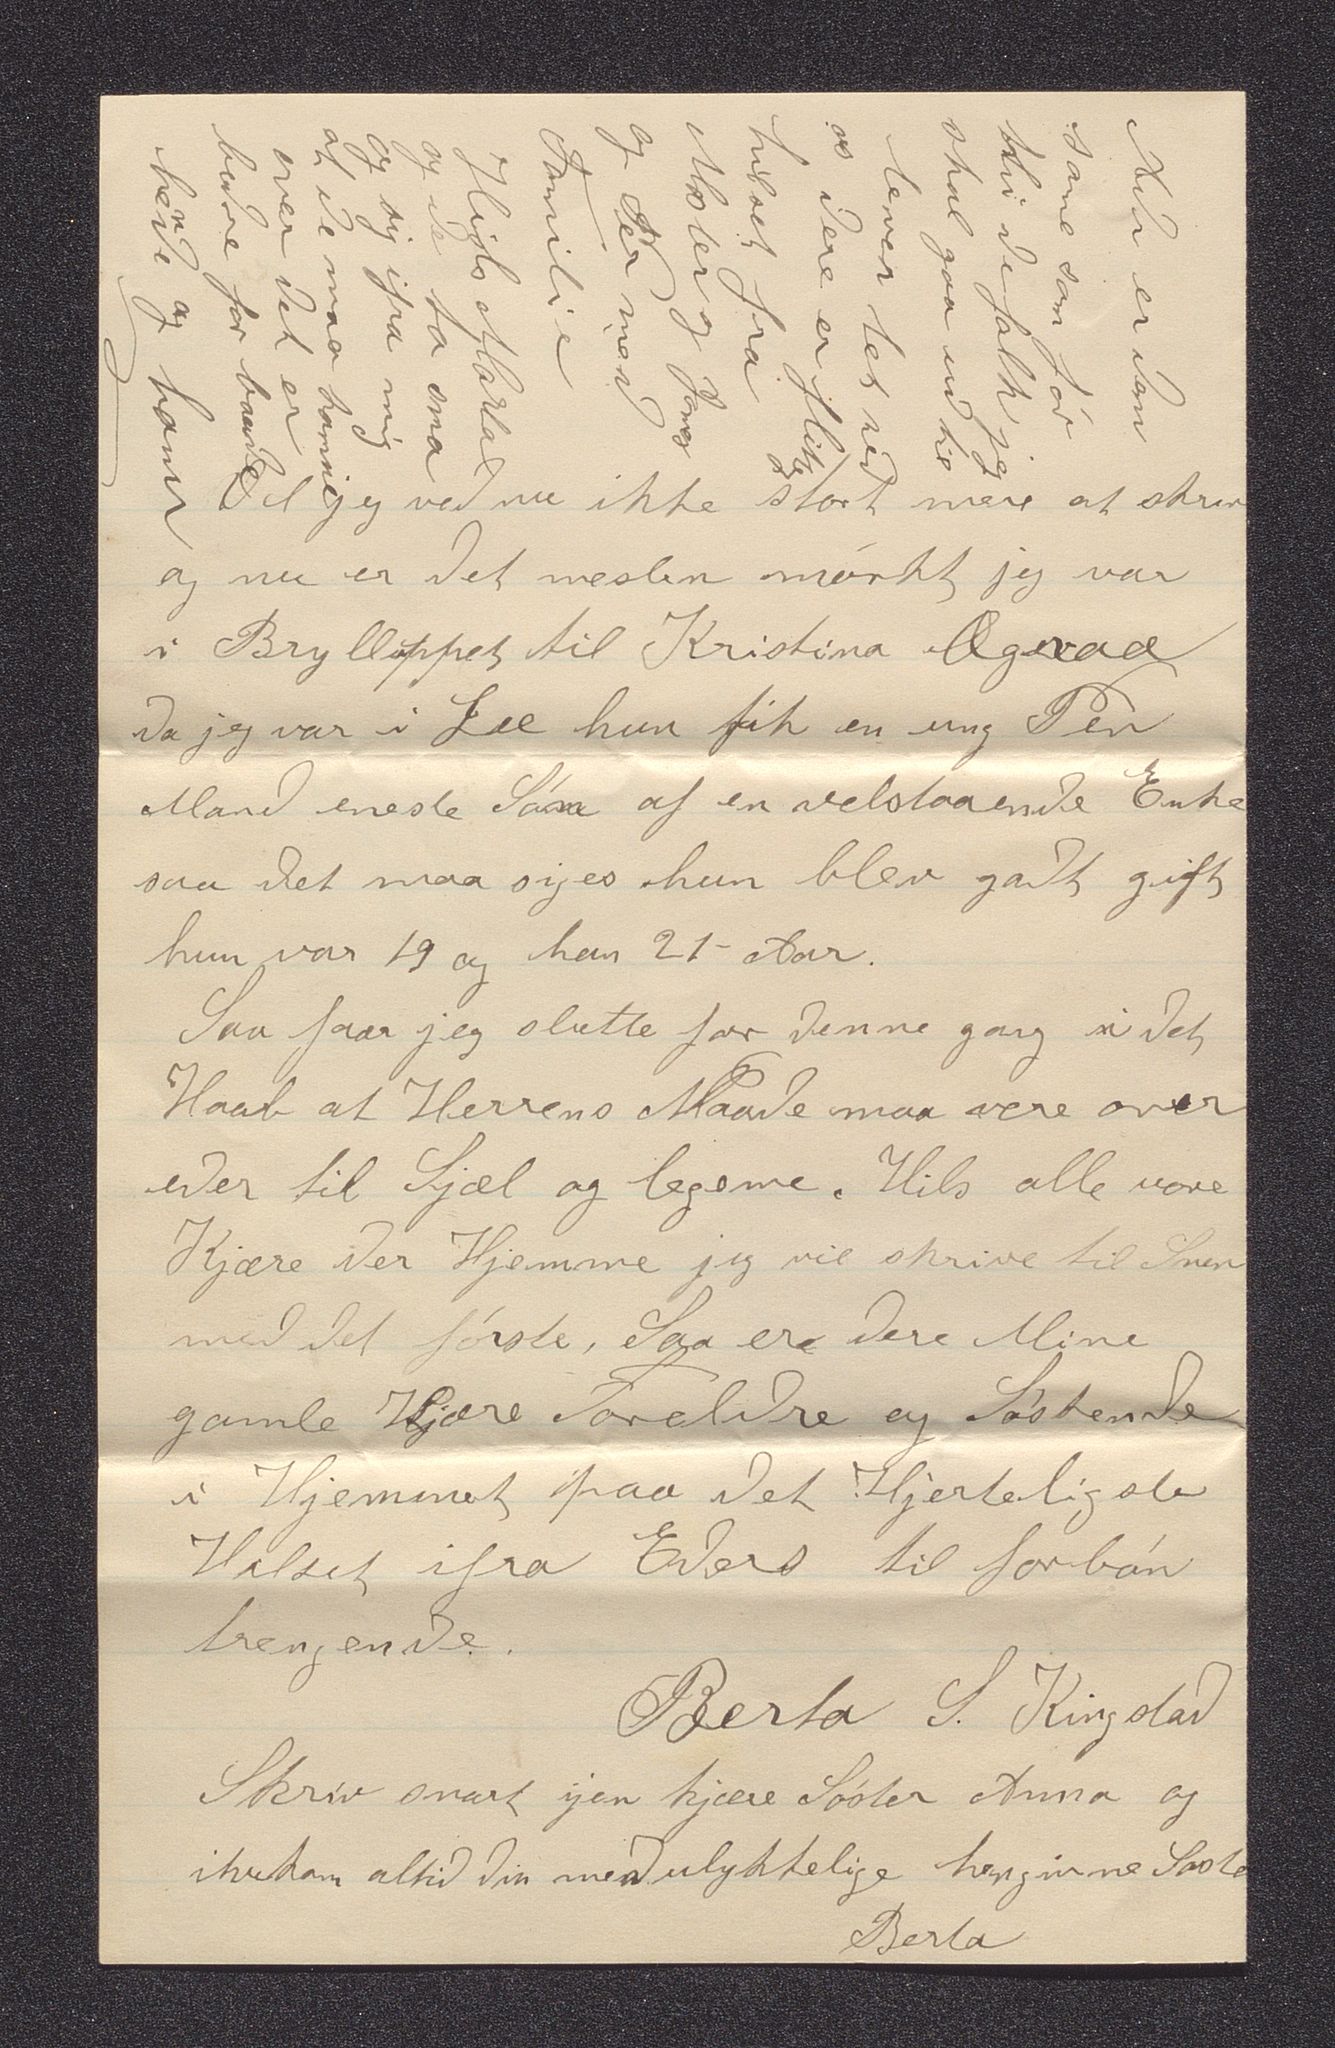 Nu er den
same som för
thi de folk jeg
skal gaa ud til
lever let ved
os dere er flittig
hilset fra
Moter og Jonas
og Per med
Familie
Hils Marta
og de to sma
og sig ifra mig
at de maa
over det er
bedre for baade
hende og ham
Ja jeg ved nu ikke stort mere at skriv
og nu er det nesten mörkt jeg var
i Brylluppet til Kristina Ogvaa
da jeg var i Lee hun fik en ung Pen
Mand eneste Sön af en velstaaende Enke
saa det maa siges hun blev godt gift
hun var 19 og han 21 Aar.
Saa faar jeg slutte for denne gang i det
Haab at Herrens Naade maa vere over
eder til Sjæl og legeme. Hils alle vore
Kjære der Hjemme jeg vil skrive til Sven
med det förste, Saa ere dere Mine
gamle Kjære Foreldre og Söskende
i Hjemmet paa det Hjerteligste
Hilset ifra Eders til forbön
trengende.
Berta S. Kingstad
Skriv snart ijen kjære Söster Anna og
ihukom altid din med ulyktelige hengivne Söste
Berta